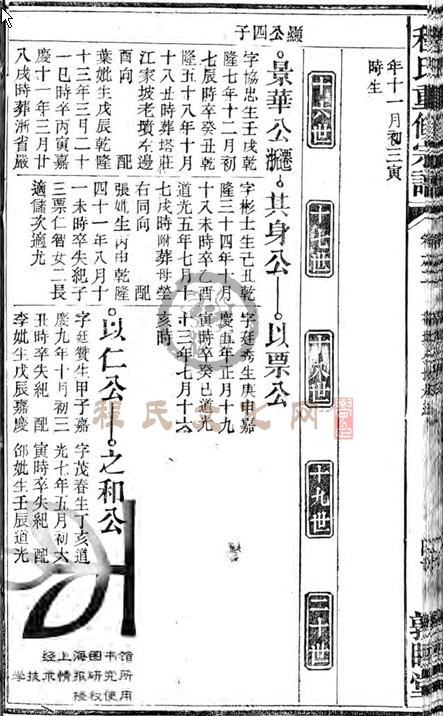 程氏重修宗譜
年十一月初三寅
時生
十六世
十七世
十八世
十九世
二十世
顯公四子
景華公
字協忠生壬戌乾
隆七年十二月初
七辰時卒癸丑乾
隆五十八年十月
十八丑時葬塔莊
江家坡老墳左邊
酉向 配
葉妣生戊辰乾隆
十三年三月二十
一巳時卒丙寅嘉
慶十一年三月廿
八戌時葬浙省嚴
其身公
字彬士生己丑乾
隆三十四年十月
十八未時卒乙酉
道光五年七月十
七戌時附葬母塋
右同向 配
張妣生丙申乾隆
四十一年八月十
一未時卒失紀子
三票仁智女二長
適儲次適尤
以票公
字廷秀生庚申嘉
慶五年正月十九
寅時卒癸巳道光
十三年七月十六
亥時
以仁公
字廷贊生甲子嘉
慶九年十月初三
丑時卒失紀 配
李妣生戊辰嘉慶
之和公
字茂春生丁亥道
光七年五月初六
寅時卒失紀 配
邵妣生壬辰道光
程氏文化网
经上海图书馆
科学技术情报研究所
授权使用